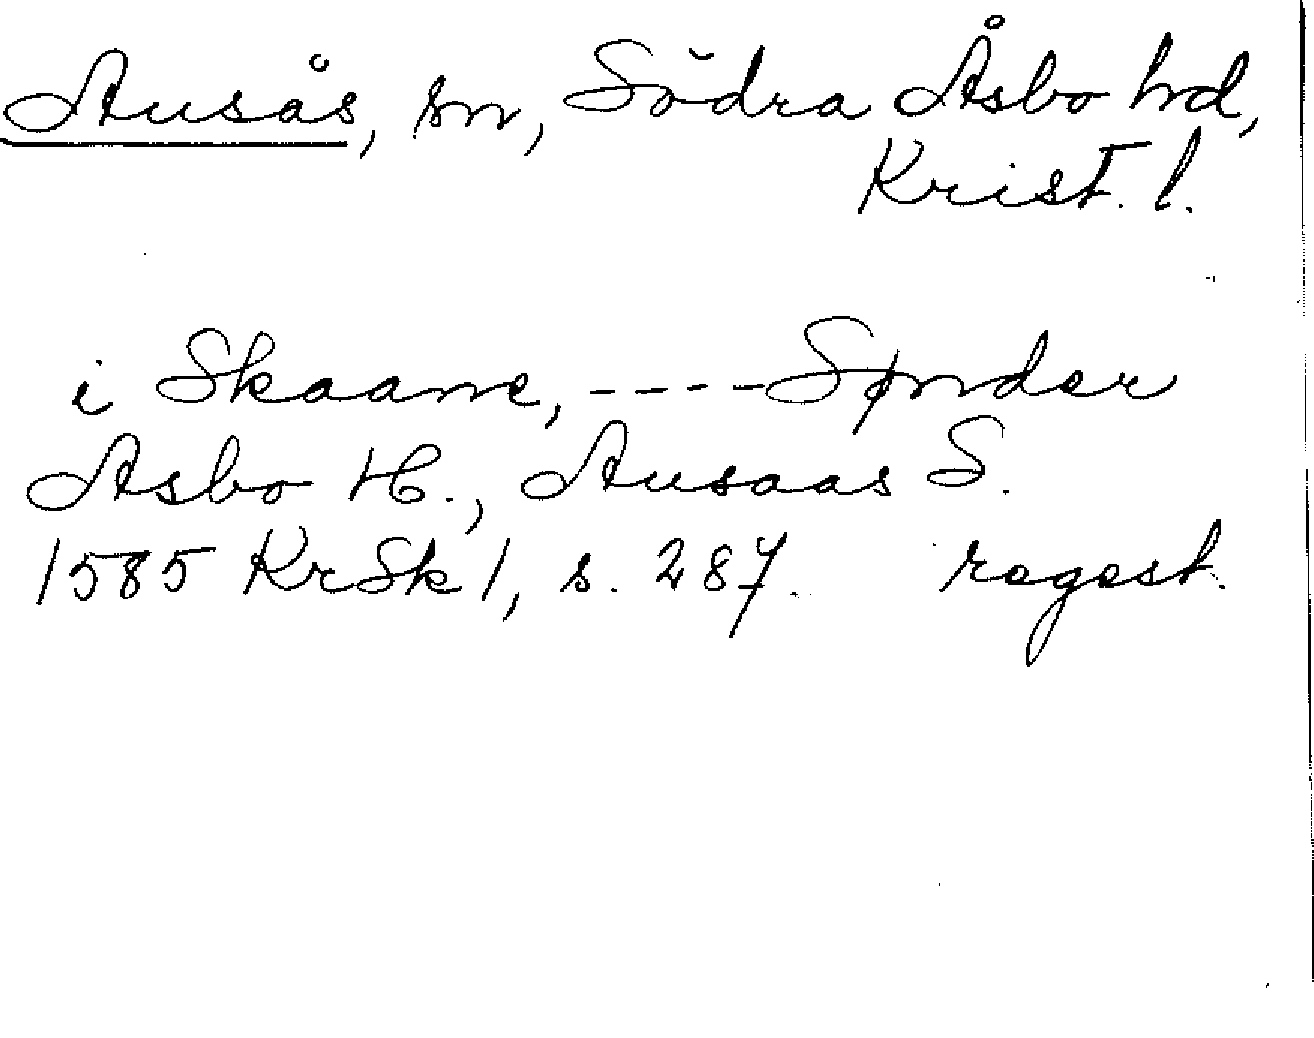 Ausås, sn, Södra Åsbo hd,
Krist. l.
i Skaane, ---- Sønder
Asbo H., Ausaas S.
1585 KrSk 1, s. 287. regest.